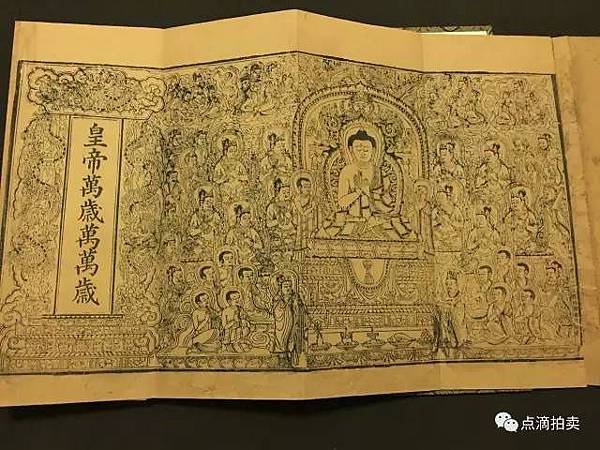 皇帝萬歲萬萬歲
点滴拍卖